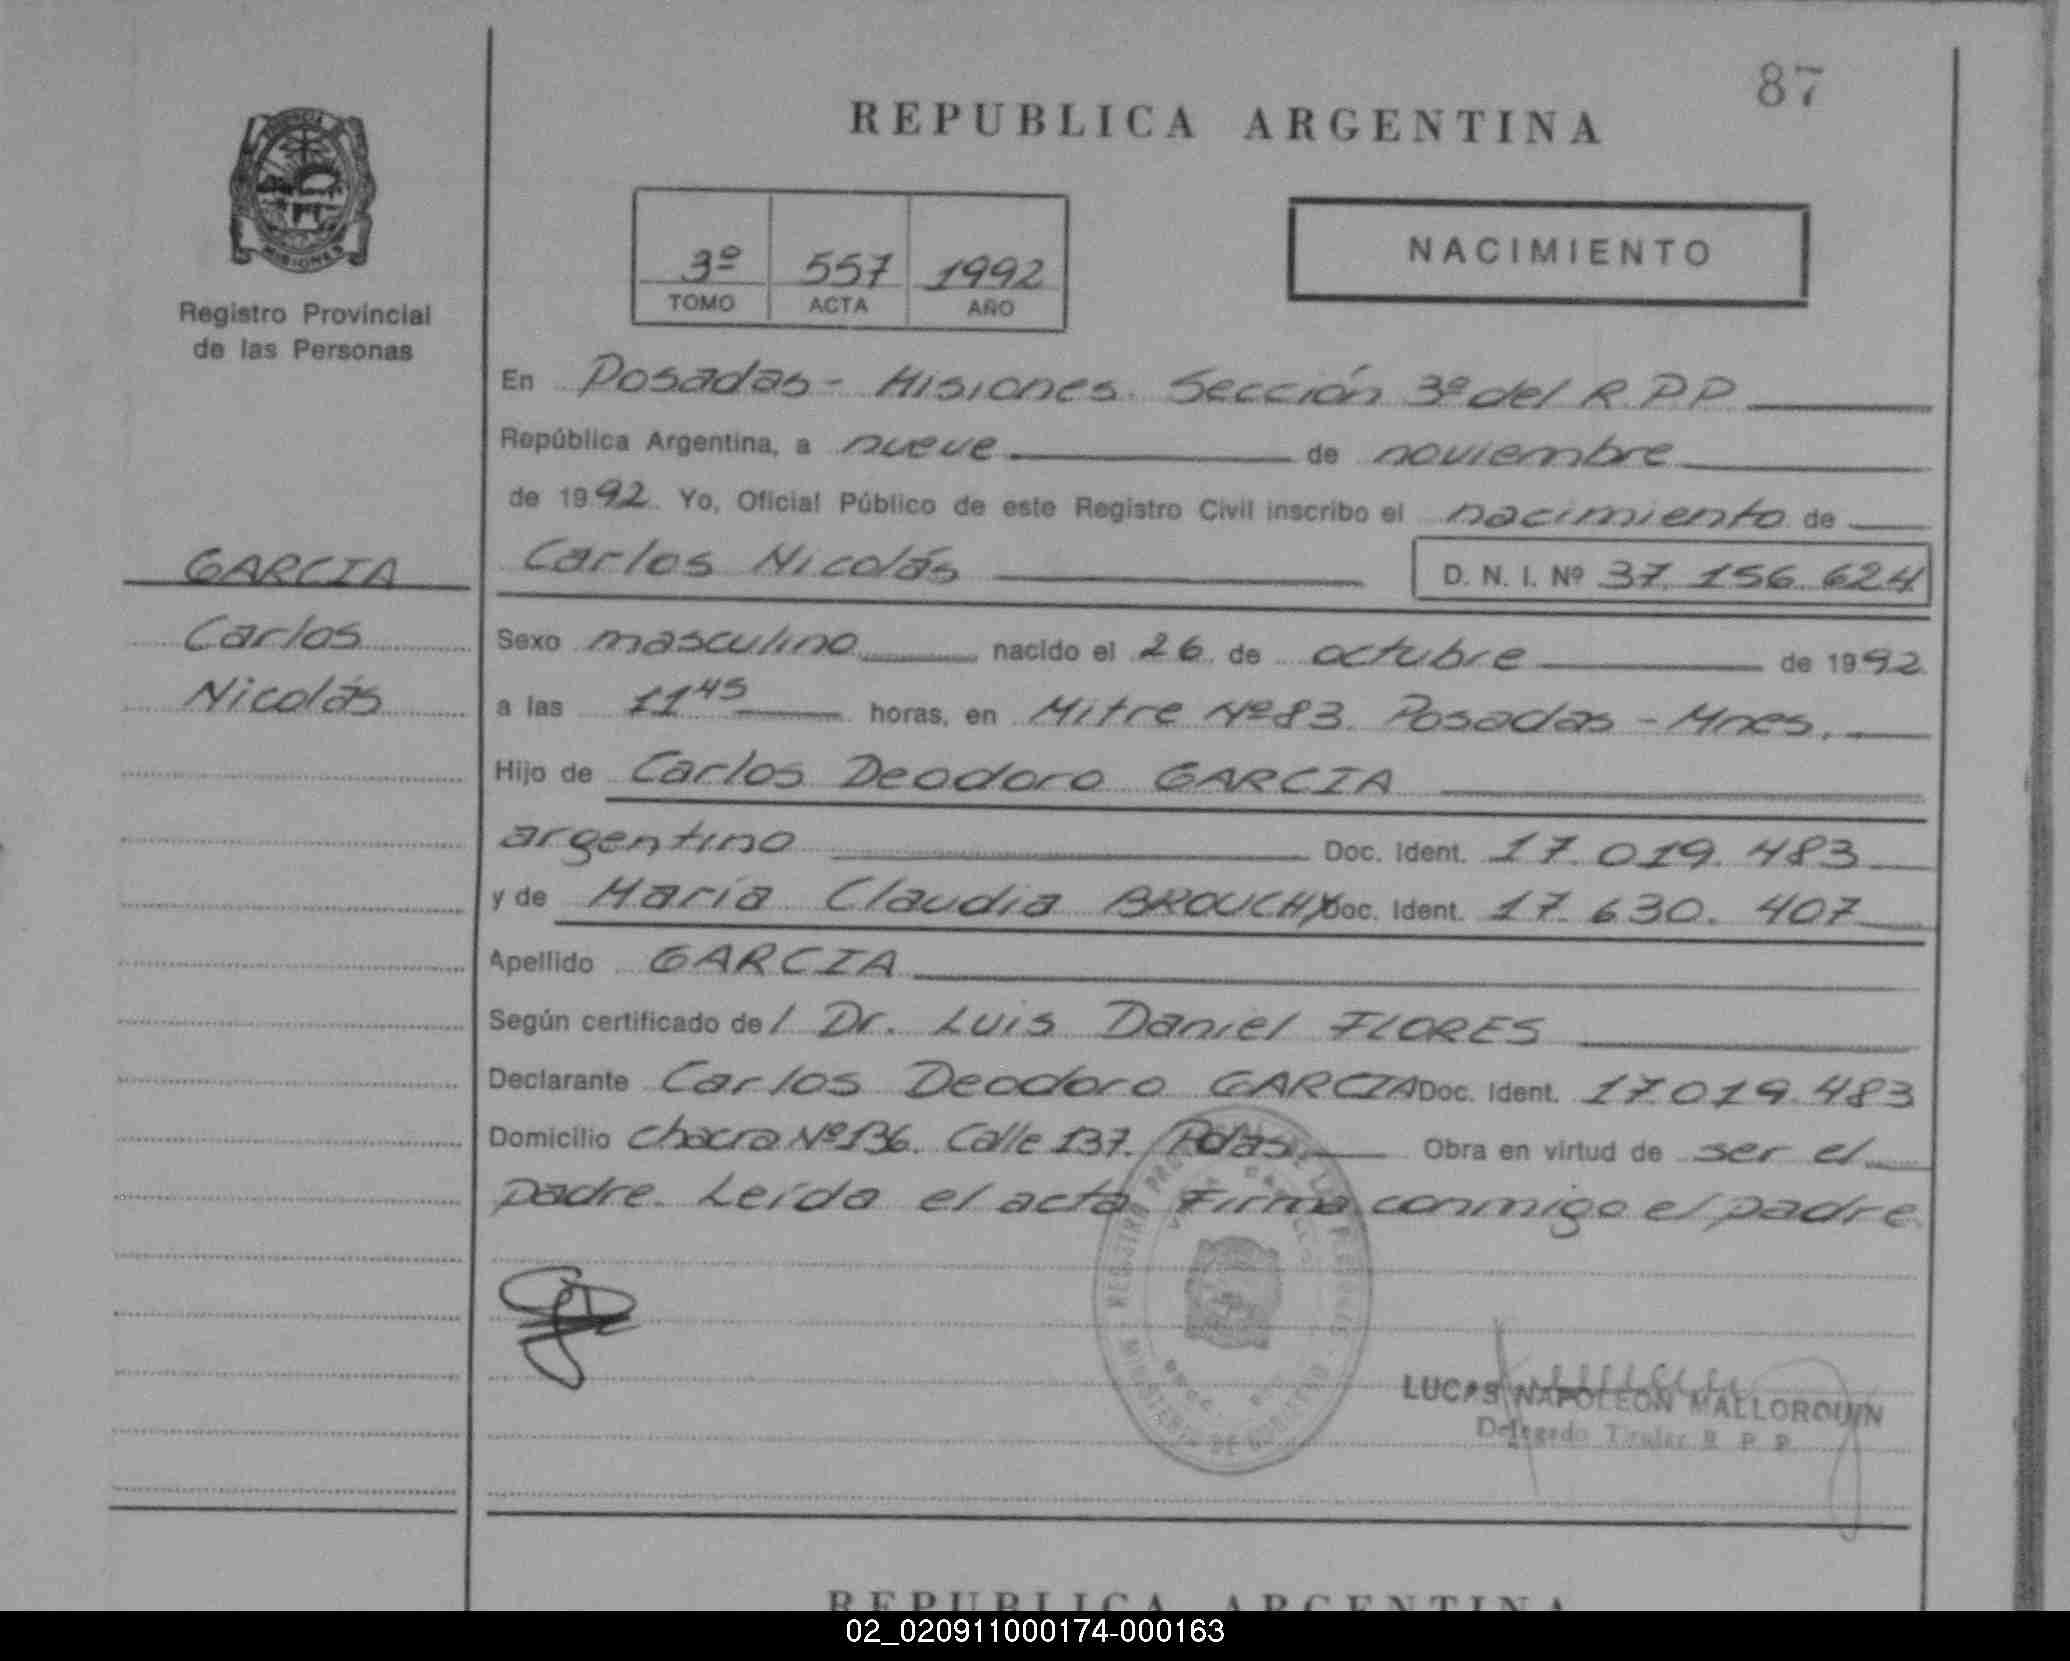 87
REPUBLICA ARGENTINA
MISIONES
Registro Provincial
de las Personas
3º 557 1992
TOMO ACTA AÑO
NACIMIENTO
En Posadas - Misiones. Sección 3º del R.P.P
República Argentina, a nueve de noviembre
de 1992. Yo, Oficial Público de este Registro Civil inscribo el nacimiento de
GARCIA
Carlos
Nicolás
Carlos Nicolás D. N. I. Nº 37.156.624
Sexo masculino nacido el 26 de octubre de 1992
a las 11 45 horas, en Mitre Nº 83. Posadas - Mnes.
Hijo de Carlos Deodoro GARCIA
argentino Doc. Ident. 17.019.483
y de María Claudia BROUCHY Doc. Ident. 17.630.407
Apellido GARCIA
Según certificado del Dr. Luis Daniel FLORES
Declarante Carlos Deodoro GARCIA Doc. Ident. 17.019.483
Domicilio Chacra Nº 136. Calle 137. Pdas. Obra en virtud de ser el
padre. Leída el acta. Firma conmigo el padre
LUCAS NAPOLEON MALLORQUIN
Delegado Titular R. P. P.
REPUBLICA ARGENTINA
02_020911000174-000163